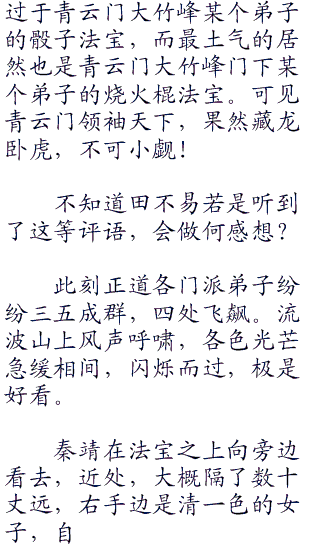 过于青云门大竹峰某个弟子
的骰子法宝，而最土气的居
然也是青云门大竹峰门下某
个弟子的烧火棍法宝。可见
青云门领袖天下，果然藏龙
卧虎，不可小觑！
不知道田不易若是听到
了这等评语，会做何感想？
此刻正道各门派弟子纷
纷三五成群，四处飞飙。流
波山上风声呼啸，各色光芒
急缓相间，闪烁而过，极是
好看。
秦靖在法宝之上向旁边
看去，近处，大概隔了数十
丈远，右手边是清一色的女
子，自